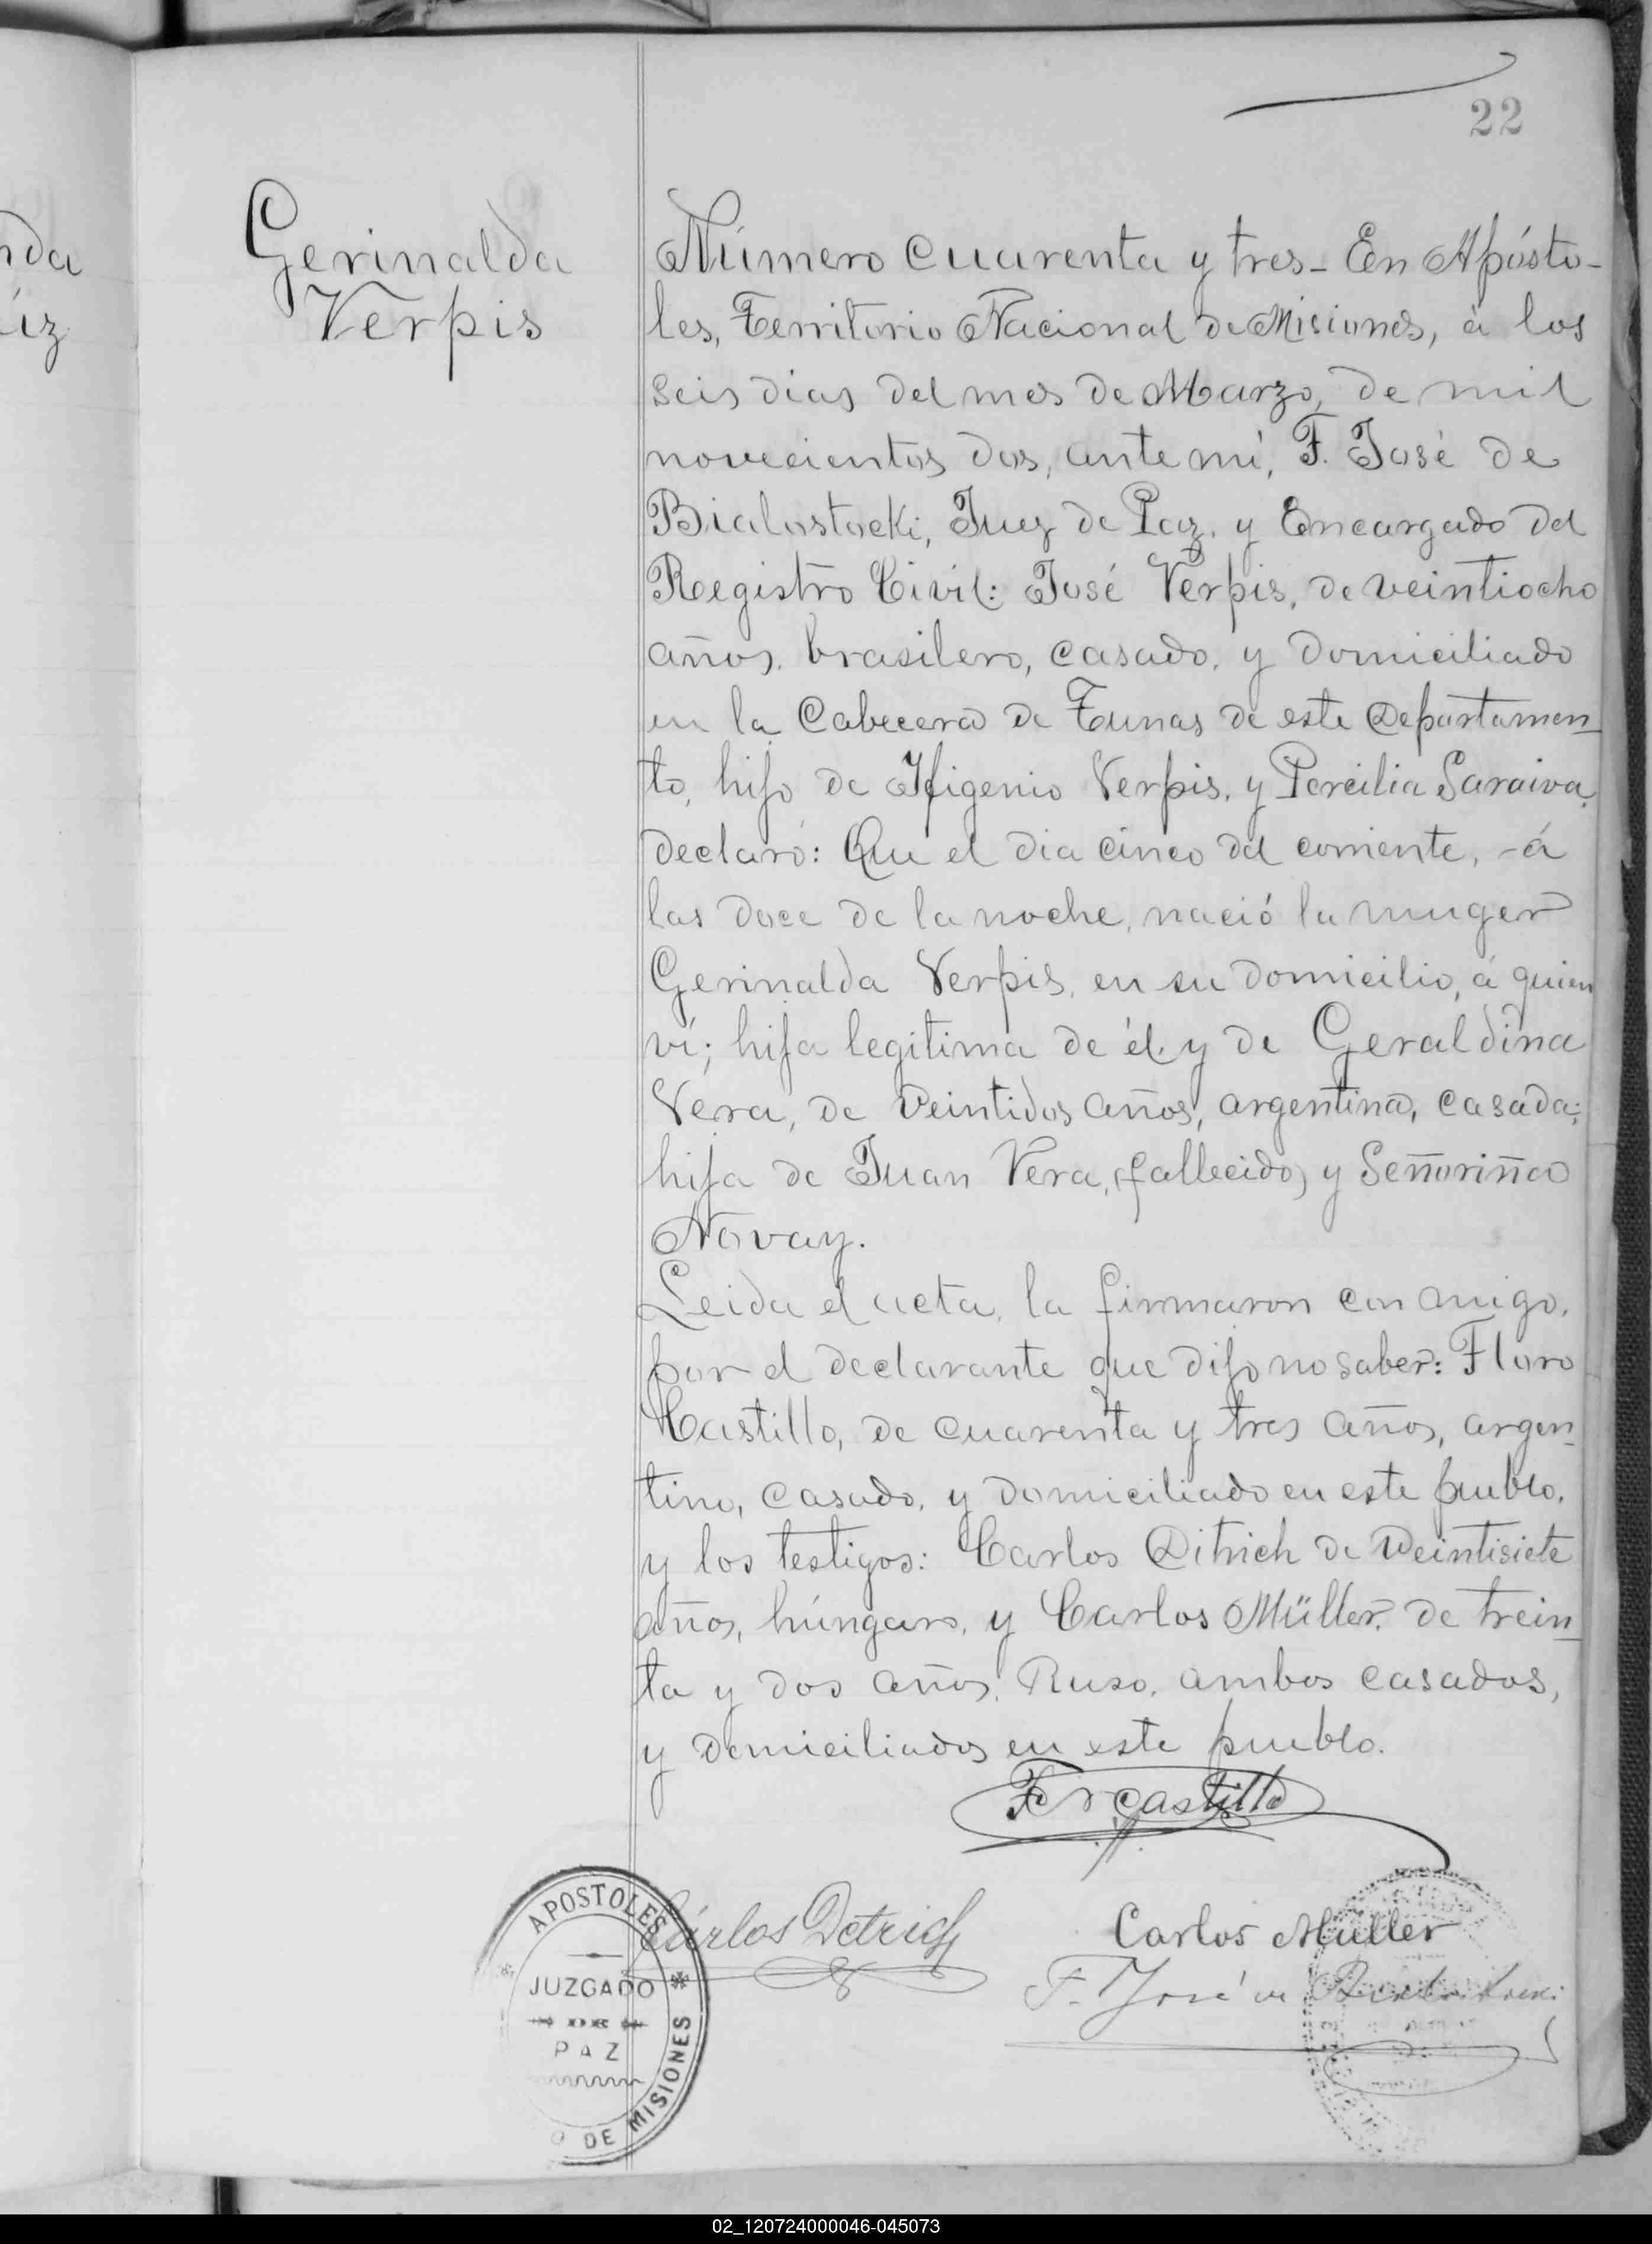 22
nda
íz
Gerinalda
Verpis
Número cuarenta y tres_ En Apósto-
les, Territorio Nacional de Misiones, á los
seis dias del mes de Marzo, de mil
novecientos dos, ante mí, F. José de
Bialostocki, Juez de Paz, y Encargado del
Registro Civil: José Verpis, de veintiocho
años, brasilero, casado, y domiciliado
en la Cabecera de Tunas de este Departamen_
to, hijo de Higenio Verpis, y Percilia Saraiva,
declaró: Que el dia cinco del corriente, -á
las doce de la noche, nació la muger
Gerinalda Verpis, en su domicilio, á quien
ví; hija legitima de él y de Geraldina
Vera, de veintidos años, argentina, casada;
hija de Juan Vera, (fallecido) y Señoriña
Novay.
Leida el acta, la firmaron con migo,
por el declarante que dijo no saber: Floro
Castillo, de cuarenta y tres años, argen_
tino, casado, y domiciliado en este pueblo,
y los testigos: Carlos Ditrich de veintisiete
años, húngaro, y Carlos Müller, de trein_
ta y dos años, Ruso, ambos casados,
y domiciliados en este pueblo.
Castillo
Cárlos Detrich
Carlos Müller
F. José de Bialostocki
APOSTOLES
JUZGADO
DE
PAZ
DE MISIONES
02_120724000046-045073